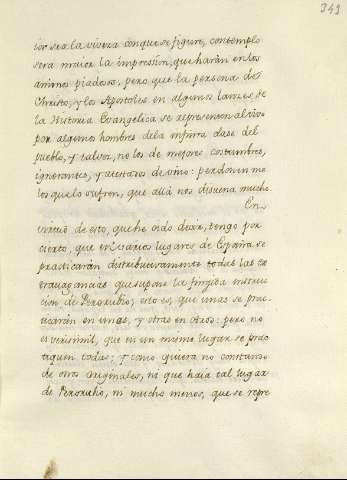 343
ior sea la viveza con que se figure, contemplo
sera maior la impression, que harán en los
animos piadosos, pero que la persona de
Christo, y los Apostoles en algunos lances de
la Historia Evangelica se representen al vivo
por algunos hombres de la infima clase del
pueblo, y talvez, no los de mejores costumbres,
ignorantes, y de vino: perdonenme
los que lo sufren, que allá nos disuena mucho
En
virtud de esto, que he oido decir, tengo por
cierto, que en varios lugares de España se
practicarán distributivamente todas las ex
travagancias que supone la fingida instruc
cion de Pezorubio; esto es, que unas se prac
ticarán en unas, y otras en otros: pero no
es verisimil, que en un mismo lugar se prac
tiquen todas; y como quiera no constando
de otros originales, ni que haia tal lugar
de Pezorubio, ni mucho menos, que se repre